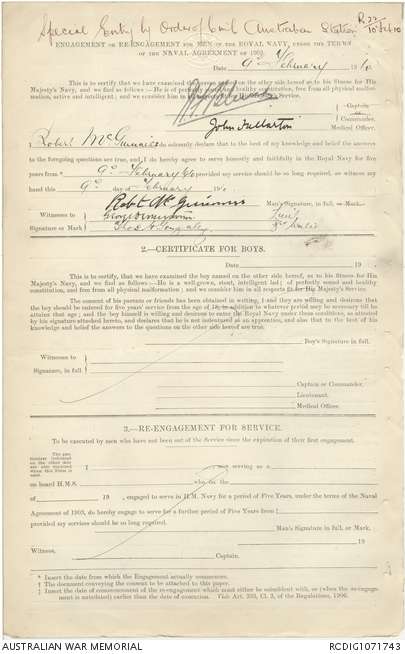 Special Entry by Order of Australian Station
ENGAGEMENT OR RE-ENGAGEMENT FOR MEN OF THE ROYAL NAVY, UNDER THE TERMS
OF THE NAVAL AGREEMENT OF 1903.
Date 9th February 1910
This is to certify that we have examined the person on the other side hereof as to his Fitness for His
Majesty's Navy, and we find as follows:—He is of perfectly sound and healthy constitution, free from all physical malformation,
active and intelligent; and we consider him in all respects fit for His Majesty's Service.
Captain or
Commander.
John Fullarton
Medical Officer.
I Robert McGuinness do solemnly declare that to the best of my knowledge and belief the answers
to the foregoing questions are true, and I do hereby agree to serve honestly and faithfully in the Royal Navy for five
years from * 9th February 1910 provided my service should be so long required, or witness my
hand this 9th day of February 1910.
Robt McGuinness Man's Signature in full, or Mark.
Witnesses to
Signature or Mark
2.—CERTIFICATE FOR BOYS.
Date 19
This is to certify, that we have examined the boy named on the other side hereof, as to his Fitness for His
Majesty's Navy, and we find as follows:—He is a well-grown, stout, intelligent lad; of perfectly sound and healthy
constitution, and free from all physical malformation; and we consider him in all respects fit for His Majesty's Service.
The consent of his parents or friends has been obtained in writing, † and they are willing and desirous that the
boy should be entered for five years' service from the age of 18, in addition to whatever period may be necessary till he
attains that age; and the boy himself is willing and desirous to enter the Royal Navy under these conditions, as attested
by his signature attached hereto, and declares that he is not indentured as an apprentice, and also that to the best of his
knowledge and belief the answers to the questions on the other side hereof are true.
Boy's Signature in full.
Witnesses to
Signature, in full.
Captain or Commander.
Lieutenant.
Medical Officer.
3.—RE-ENGAGEMENT FOR SERVICE.
To be executed by men who have not been out of the Service since the expiration of their first engagement.
I now serving as a
on board H.M.S. who on the
of 19 , engaged to serve in H.M. Navy for a period of Five Years, under the terms of the Naval
Agreement of 1903, do hereby engage to serve for a further period of Five Years from ‡
provided my services should be so long required.
Man's Signature in full, or Mark.
19
Witness,
Captain.
* Insert the date from which the Engagement actually commences.
† The document conveying the consent to be attached to this paper.
‡ Insert date of commencement of the re-engagement which must either be coincident with, or (when the re-engagement
is antedated) earlier than the date of execution. Vide Art. 333, Cl. 3, of the Regulations, 1906.
AUSTRALIAN WAR MEMORIAL
RCDIG1071743